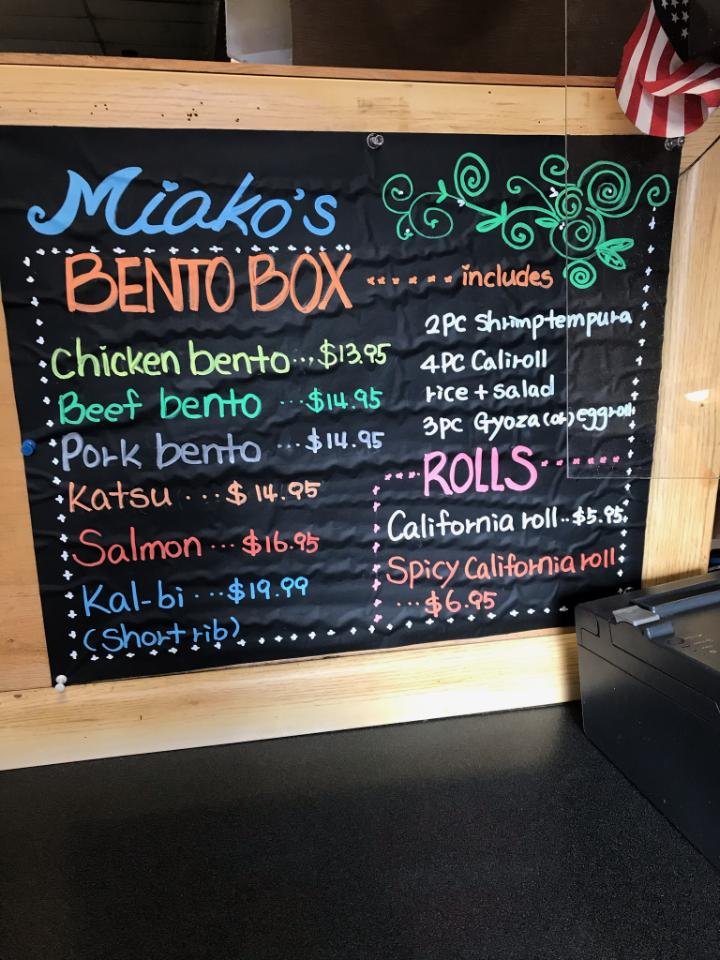 Miako's
BENTO BOX ...... includes
2PC Shrimp tempura
4PC Caliroll
rice + salad
3pc Gyoza (or) eggroll
Chicken bento ... $13.95
Beef bento ... $14.95
Pork bento ... $14.95
Katsu ... $14.95
Salmon ... $16.95
Kal-bi ... $19.99
(Short rib)
ROLLS
California roll .. $5.95
Spicy California roll
... $6.95